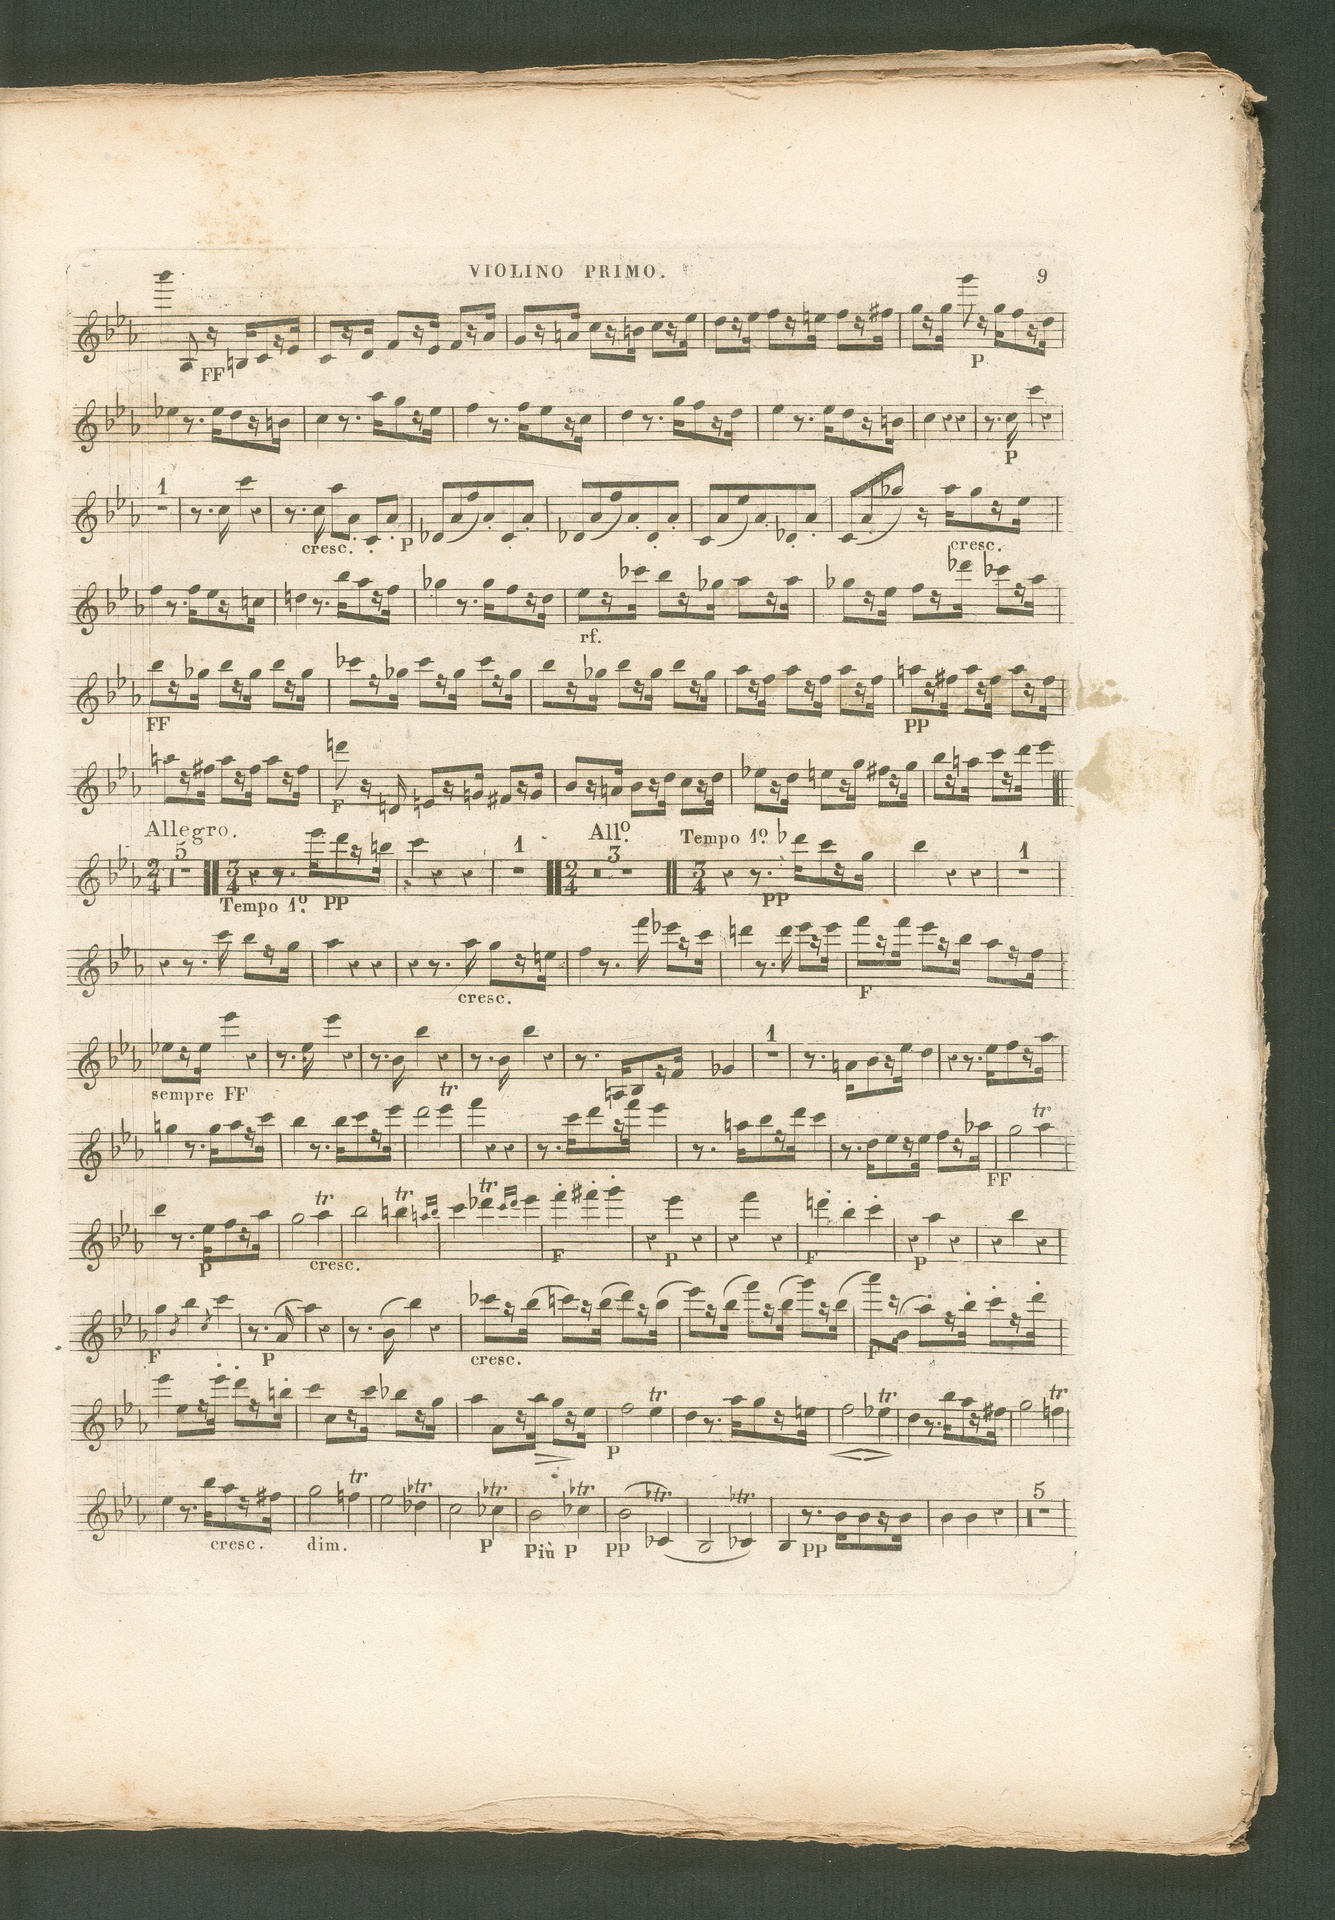 VIOLINO PRIMO. 9
FF P
P
1 cresc. P cresc.
rf.
FF PP
F
Allegro. All.º Tempo 1.º
5 1 3 1
Tempo 1.º PP PP
cresc. F
1
sempre FF
tr
tr
FF
tr tr tr
P cresc. F P F P
F P cresc. F
tr tr tr
P
tr tr tr tr tr tr 5
cresc. dim. P Più P PP PP